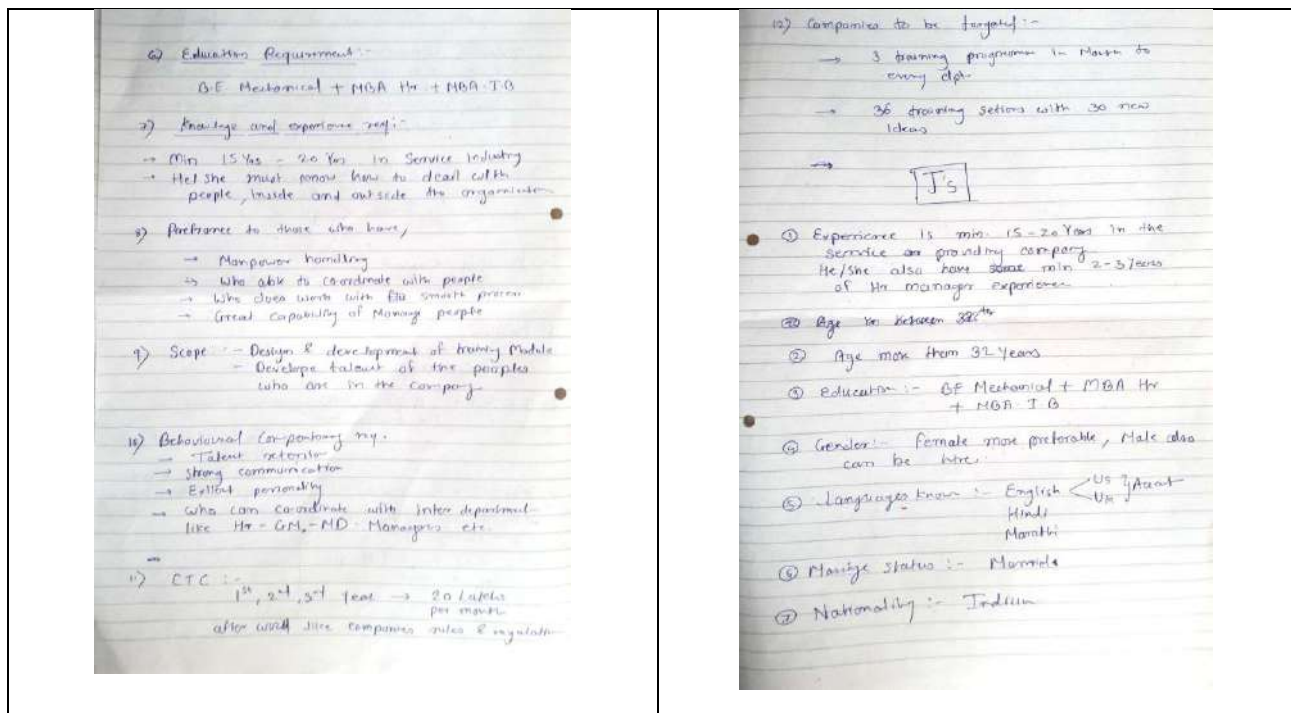 6) Education Requirement :-
B.E Mechanical + MBA Hr + MBA. I.B
7) Knowledge and experience req :-
→ Min 15 Yrs - 20 Yrs in Service Industry
→ He/she must know how to deal with
people, inside and outside the organisation
8) Prefrance to those who have,
→ Manpower handling
→ Who able to co-ordinate with people
→ Who does work with smooth process
→ Great capability of Manage people
9) Scope :- - Design & development of training Module
- Develope talent of the peoples
who are in the company
10) Behavioural Competency rq.
→ Talent retension
→ Strong communication
→ personality
→ Who can co-ordinate with inter department
like Hr - GM. - MD - Managers etc.
11) CTC :-
1st, 2nd, 3rd Year → 20 Lakhs
per month
after companies rules & regulation
12) Companies to be targated :-
→ 3 training programme in Month to
every dpt.
→ 36 training setions with 30 new
Ideas
→
J's
① Experience is min. 15-20 Years in the
service providing company
He/she also have min 2-3 years
of Hr manager experience
Age between
② Age more than 32 Years
③ Education :- BE Mechanical + MBA Hr
+ MBA. I B
④ Gender :- Female more preferable, Male also
can be hire.
⑤ Languages known :- English < US UK } Accent
Hindi
Marathi
⑥ Marrige status :- Married
⑦ Nationality :- Indian